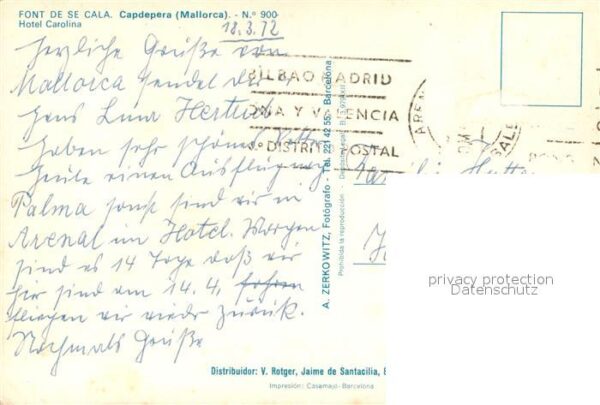 FONT DE SE CALA. Capdepera (Mallorca). - N.º 900
Hotel Carolina
18.3.72
Herzliche Grüße von
Mallorca sendet
Hans
haben sehr schönes
heute einen Ausflug
Palma sonst sind wir in
Arenal im Hotel. Morgen
sind es 14 Tage daß wir
hier sind am 14.4. fahren
fliegen wir wieder zurück.
Nochmals Grüße
BILBAO MADRID
Y VALENCIA
DISTRITO POSTAL
A. ZERKOWITZ, Fotógrafo - Tel. 221 42 55 - Barcelona
Prohibida la reproducción
privacy protection
Datenschutz
Distribuidor: V. Rotger, Jaime de Santacilia,
Impresión: Casamajó-Barcelona